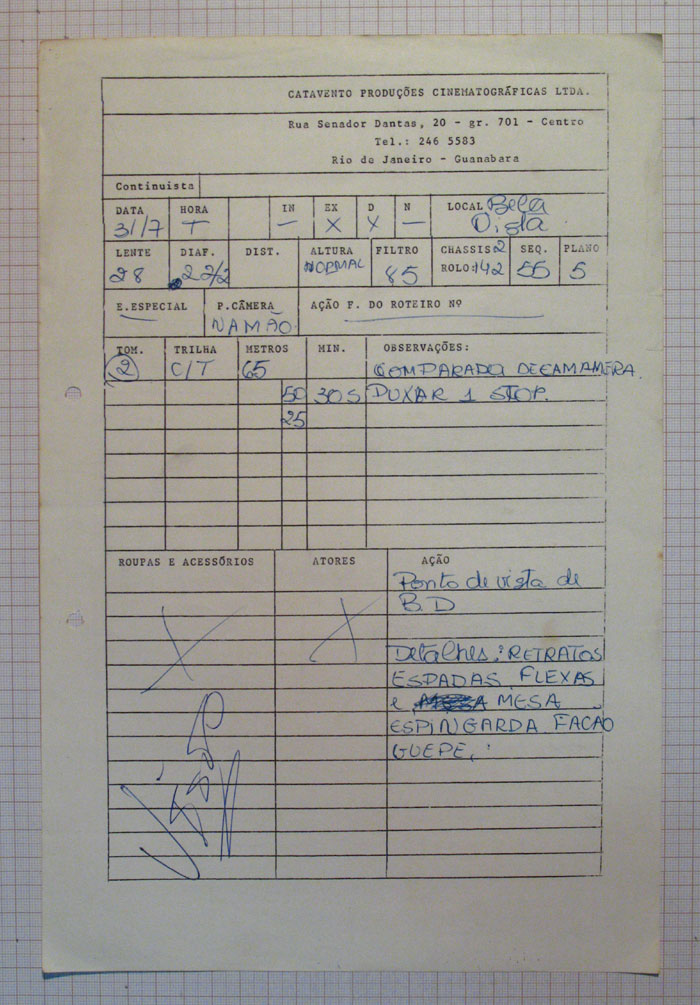 CATAVENTO PRODUÇÕES CINEMATOGRÁFICAS LTDA.
Rua Senador Dantas, 20 - gr. 701 - Centro
Tel.: 246 5583
Rio de Janeiro - Guanabara
Continuista
DATA HORA IN EX D N LOCAL Bela
31/7 T — X X — Vista
LENTE DIAF. DIST. ALTURA FILTRO CHASSIS 2 SEQ. PLANO
28 2 2/2 NORMAL 85 ROLO: 142 55 5
E.ESPECIAL P.CÂMERA AÇÃO F. DO ROTEIRO Nº
NAMÃO
TOM. TRILHA METROS MIN. OBSERVAÇÕES:
2 C/T 65 COMPARADA DECAMAMERA.
50 30S PUXAR 1 STOP.
25
ROUPAS E ACESSÓRIOS ATORES AÇÃO
Ponto de vista de
B.D
X X
Detalhes: RETRATOS
ESPADAS, FLEXAS
e MESA
ESPINGARDA FACAO